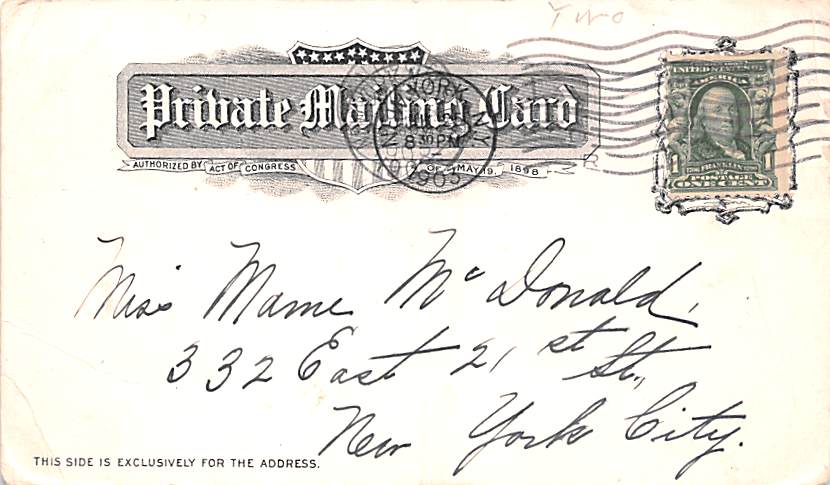 Two
Private Mailing Card
AUTHORIZED BY ACT OF CONGRESS OF MAY 19, 1898
NEW YORK, N.Y.
8 30 PM
1903
UNITED STATES OF AMERICA
1 FRANKLIN 1
POSTAGE
ONE CENT
Miss Mame McDonald,
332 East 21st St.,
New York City.
THIS SIDE IS EXCLUSIVELY FOR THE ADDRESS.